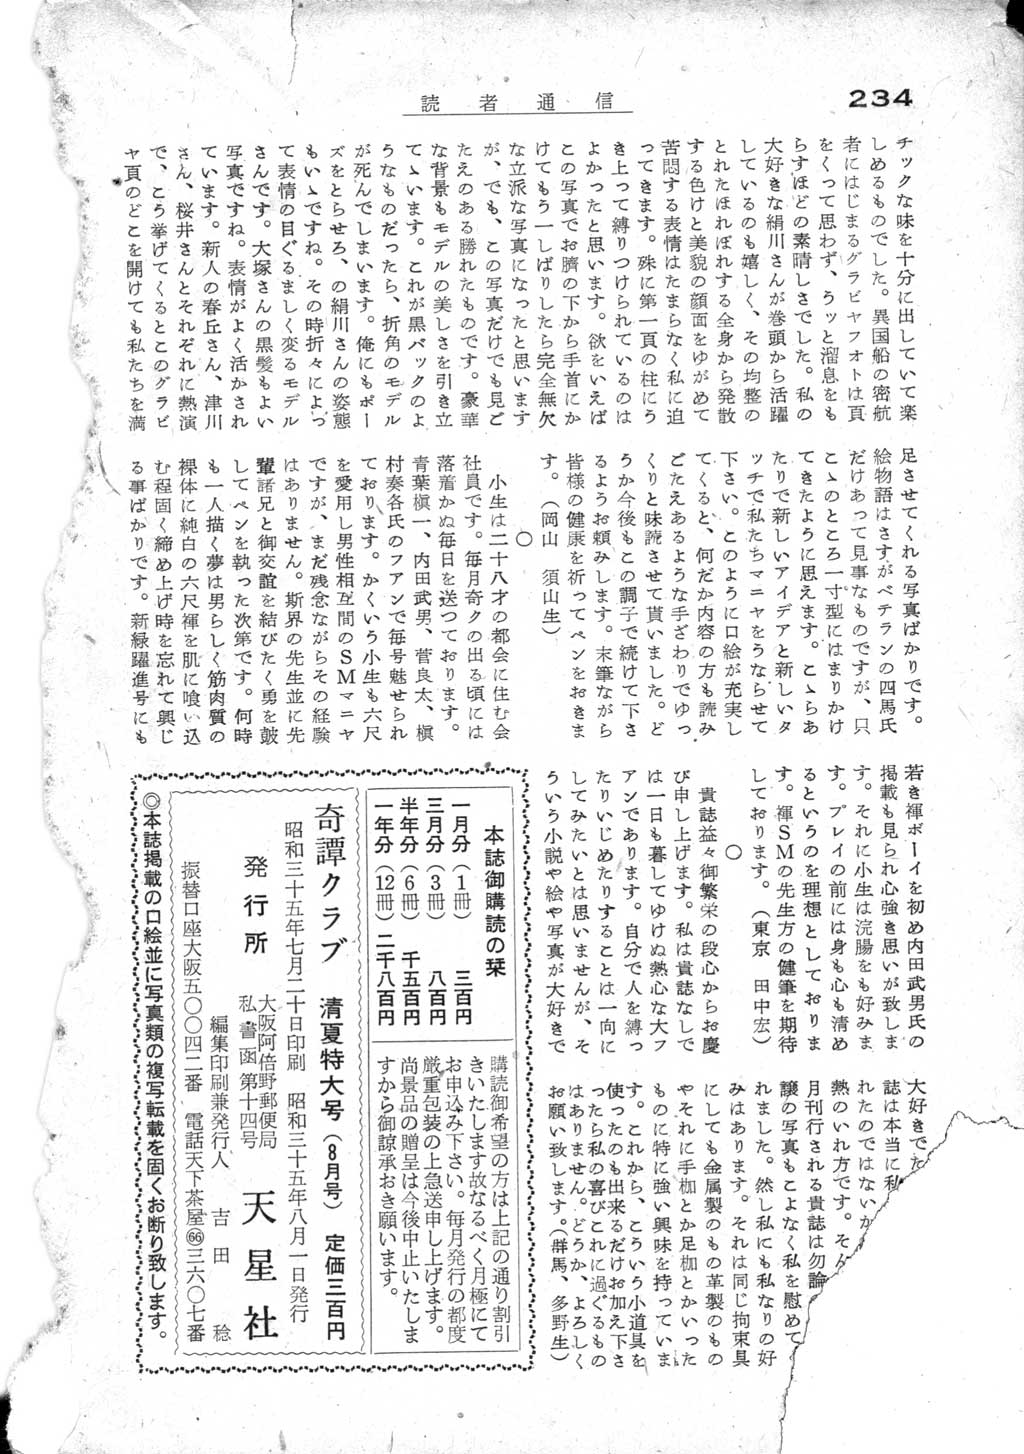 読者通信
234
チックな味を十分に出していて楽
しめるものでした。異国船の密航
者にはじまるグラビヤフォトは頁
をくって思わず、うッと溜息をも
らすほどの素晴しさでした。私の
大好きな絹川さんが巻頭から活躍
しているのも嬉しく、その均整の
とれたほれぼれする全身から発散
する色けと美貌の顔面をゆがめて
苦悶する表情はたまらなく私に迫
ってきます。殊に第一頁の柱にう
き上って縛りつけられているのは
よかったと思います。欲をいえば
この写真でお臍の下から手首にか
けてもう一しばりしたら完全無欠
な立派な写真になったと思います
が、でも、この写真だけでも見ご
たえのある勝れたものです。豪華
な背景もモデルの美しさを引き立
てゝいます。これが黒バックのよ
うなものだったら、折角のモデル
が死んでしまいます。俺にもポー
ズをとらせろ、の絹川さんの姿態
もいゝですね。その時折々によっ
て表情の目ぐるましく変るモデル
さんです。大塚さんの黒髪もよい
写真ですね。表情がよく活かされ
ています。新人の春丘さん、津川
さん、桜井さんとそれぞれに熱演
で、こう挙げてくるとこのグラビ
ヤ頁のどこを開けても私たちを満
足させてくれる写真ばかりです。
絵物語はさすがベテランの四馬氏
だけあって見事なものですが、只
こゝのところ一寸型にはまりかけ
てきたように思えます。こゝらあ
たりで新しいアイデアと新しいタ
ッチで私たちマニヤをうならせて
下さい。このように口絵が充実し
てくると、何だか内容の方も読み
ごたえあるような手ざわりでゆっ
くりと味読させて貰いました。ど
うか今後もこの調子で続けて下さ
るようお頼みします。末筆ながら
皆様の健康を祈ってペンをおきま
す。(岡山 須山生)
○
小生は二十八才の都会に住む会
社員です。毎月奇クの出る頃には
落着かぬ毎日を送つております。
青葉槇一、内田武男、菅良太、槇
村奏各氏のファンで毎号魅せられ
ております。かくいう小生も六尺
を愛用し男性相互間のSMマニヤ
ですが、まだ残念ながらその経験
はありません。斯界の先生並に先
輩諸兄と御交誼を結びたく勇を鼓
してペンを執った次第です。何時
も一人描く夢は男らしく筋肉質の
裸体に純白の六尺褌を肌に喰い込
む程固く締め上げ時を忘れて興じ
る事ばかりです。新緑躍進号にも
若き褌ボーイを初め内田武男氏の
掲載も見られ心強き思いが致しま
す。それに小生は浣腸をも好みま
す。プレイの前には身も心も清め
るというのを理想としておりま
す。褌SMの先生方の健筆を期待
しております。(東京 田中宏)
○
貴誌益々御繁栄の段心からお慶
び申し上げます。私は貴誌なしで
は一日も暮してゆけぬ熱心な大フ
アンであります。自分で人を縛っ
たりいじめたりすることは一向に
してみたいとは思いませんが、そ
ういう小説や絵や写真が大好きで
大好きでた
誌は本当に私
れたのではないか
熱のいれ方です。そん
月刊行される貴誌は勿論
譲の写真もこよなく私を慰めて
れました。然し私にも私なりの好
みはあります。それは同じ拘束具
にしても金属製のもの革製のもの
やそれに手枷とか足枷とかいった
ものに特に強い興味を持っていま
す。これから、こういう小道具を
使ったのも出来るだけお加え下さ
ったら私の喜びこれに過ぐるもの
はありません。どうか、よろしく
お願い致します。(群馬、多野生)
本誌御購読の栞
一月分(1冊) 三百円
三月分(3冊) 八百円
半年分(6冊) 千五百円
一年分(12冊) 二千八百円
購読御希望の方は上記の通り割引
きいたします故なるべく月極にて
お申込み下さい。毎月発行の都度
厳重包装の上急送申し上げます。
尚景品の贈呈は今後中止いたしま
すから御諒承おき願います。
奇譚クラブ 清夏特大号(8月号) 定価三百円
昭和三十五年七月二十日印刷 昭和三十五年八月一日発行
発行所 大阪阿倍野郵便局私書函第十四号 天星社
編集印刷兼発行人 吉田稔
振替口座大阪五〇〇四二番 電話天下茶屋66三六〇七番
◎本誌掲載の口絵並に写真類の複写転載を固くお断り致します。